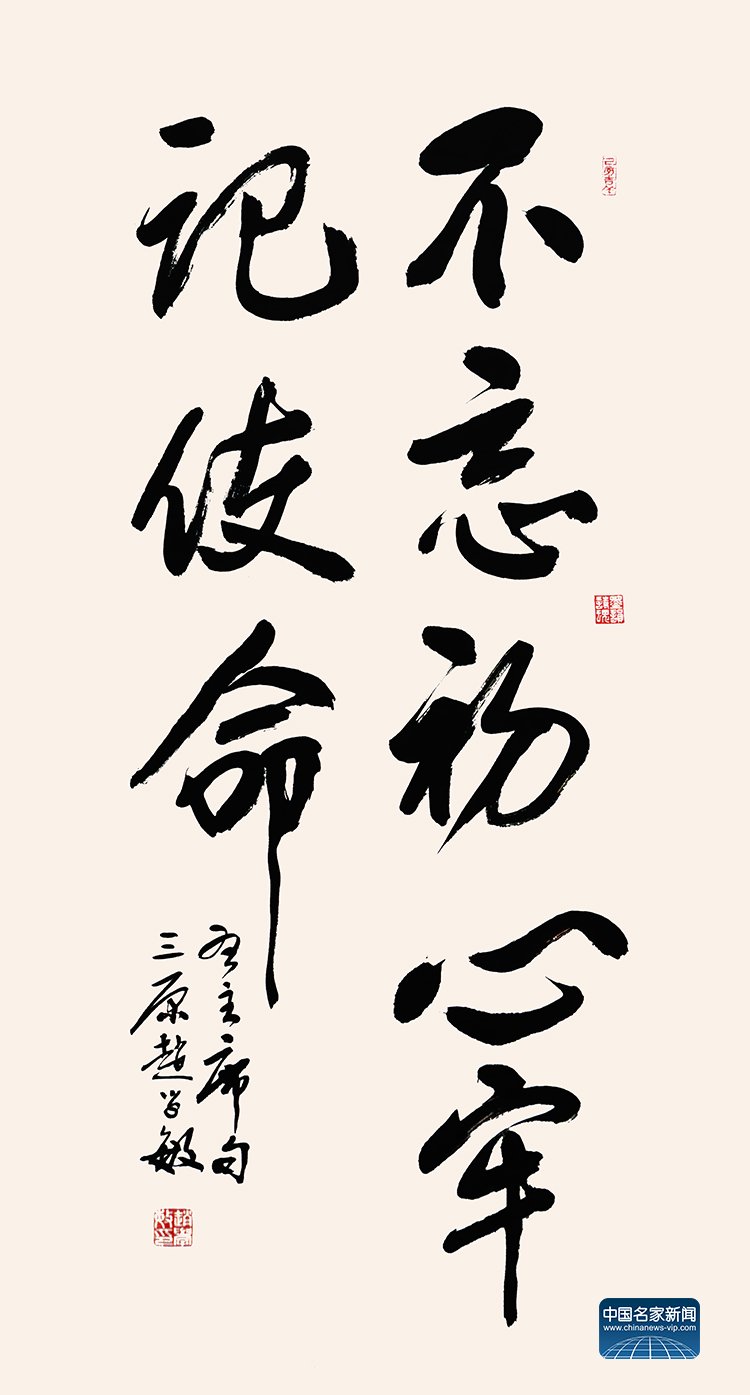 不忘初心牢
记使命
主席句
三原赵学敏
趙學敏印
中国名家新闻
www.chinanews-vip.com